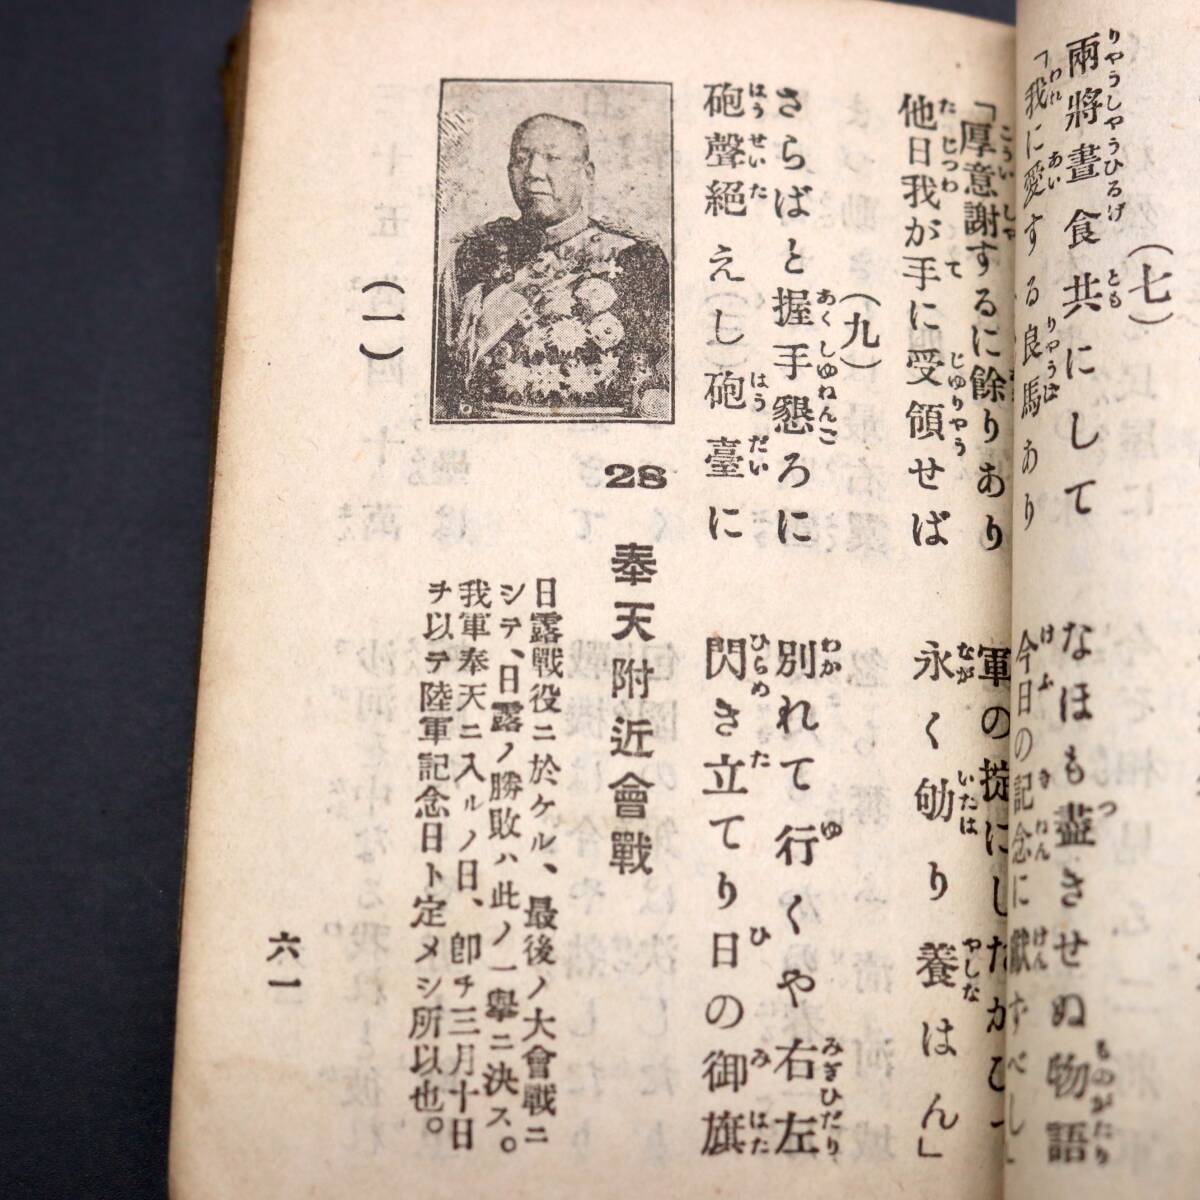 (七)
兩將晝食共にして なほも盡きせぬ物語
「我に愛する良馬あり 今日の記念に獻ずべし」
「厚意謝するに餘りあり 軍の掟にしたがひ
他日我が手に受領せば 永く劬り養はん」
(九)
さらばと握手懇ろに 別れて行くや右左
砲聲絕えし砲臺に 閃き立てり日の御旗
28 奉天附近會戰
日露戰役ニ於ケル、最後ノ大會戰ニ
シテ、日露ノ勝敗ハ此ノ一擧ニ決ス。
我軍奉天ニ入ルノ日、卽チ三月十日
ヲ以テ陸軍記念日ト定メシ所以也。
(一)
六一